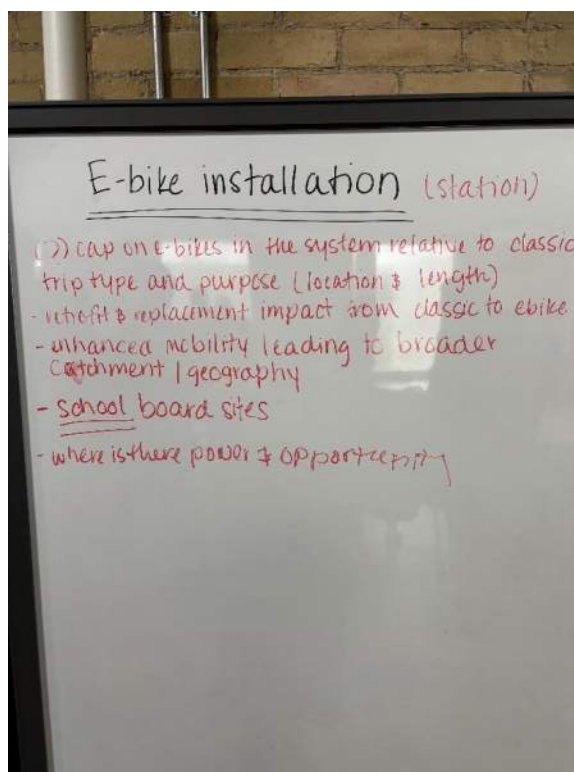 E-bike installation (station)
(?) cap on e-bikes in the system relative to classic
trip type and purpose (location & length)
- retrofit & replacement impact from classic to ebike
- enhanced mobility leading to broader
catchment / geography
- school board sites
- where is there power & opportunity